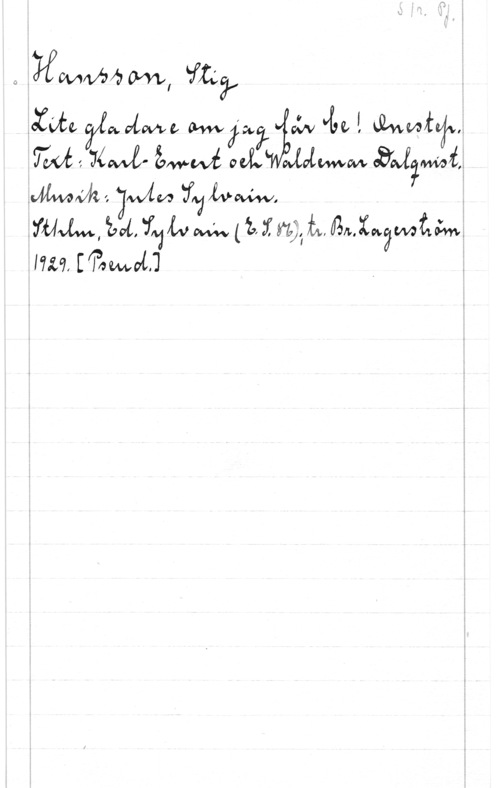 S/r. Pf.
Hansson, Stig
Lite gladare om jag får be! Onestep.
Text: Karl-Ewert och Waldemar Dalquist.
Musik: Jules Sylvain.
Sthlm, Ed. Sylvain (E. S. 86); tr. Br. Lagerström
1929. [Pseud.]